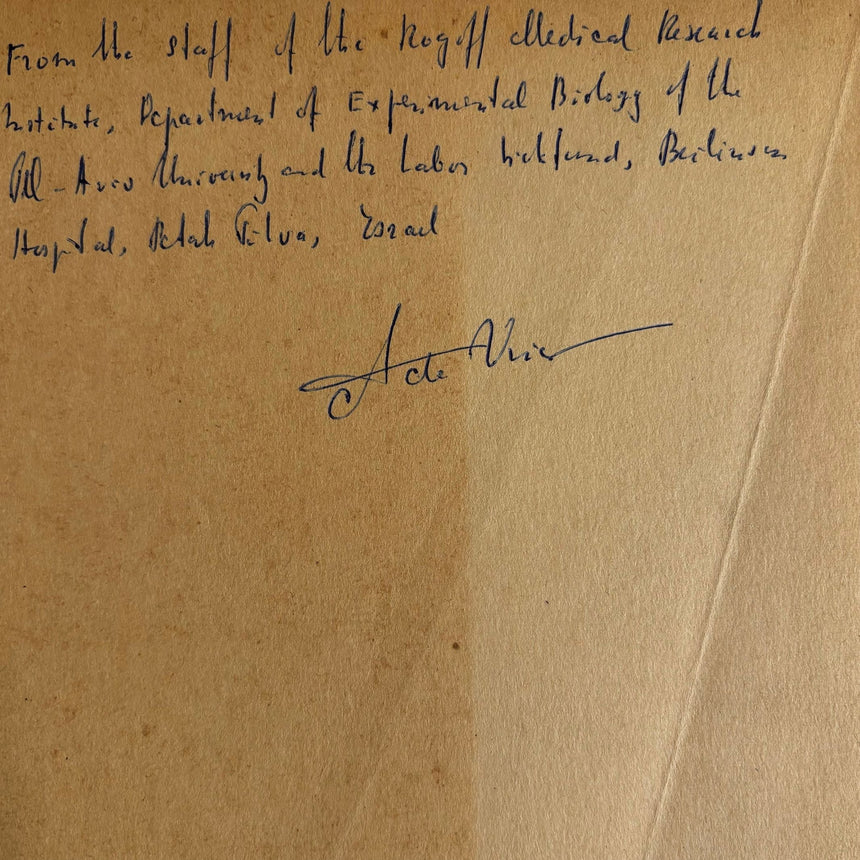 From the staff of the Rogoff Medical Research
Institute, Department of Experimental Biology of the
Tel-Aviv University and the Labor Sickfund, Beilinson
Hospital, Petah Tikva, Israel
A de Vries